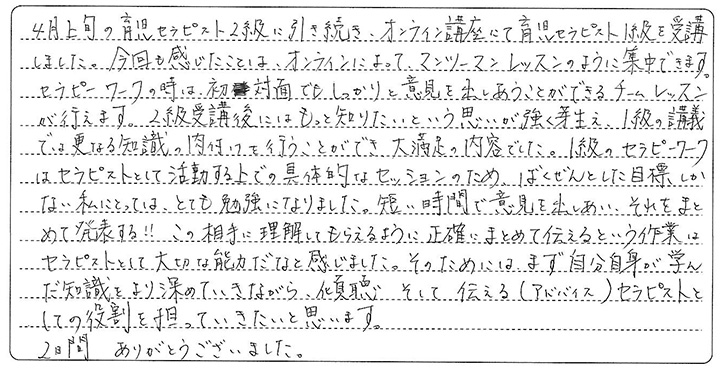 4月上旬の育児セラピスト2級に引き続き、オンライン講座にて育児セラピスト1級を受講
しました。今回も感じたことは、オンラインによって、マンツーマンレッスンのように集中できます。
セラピーワークの時は、初対面でもしっかりと意見を出しあうことができるチームレッスン
が行えます。2級受講後にはもっと知りたいという思いが強く芽生え、1級の講義
では更なる知識の肉付けを行うことができ大満足の内容でした。1級のセラピーワーク
はセラピストとして活動する上での具体的なセッションのため、ばくぜんとした目標しか
ない私にとっては、とても勉強になりました。短い時間で意見を出しあい、それをまと
めて発表する!! この相手に理解してもらえるように正確にまとめて伝えるという作業は
セラピストとして大切な能力だなと感じました。そのためには、まず自分自身が学ん
だ知識をより深めていきながら、傾聴 そして 伝える(アドバイス)セラピストと
しての役割を担っていきたいと思います。
2日間 ありがとうございました。